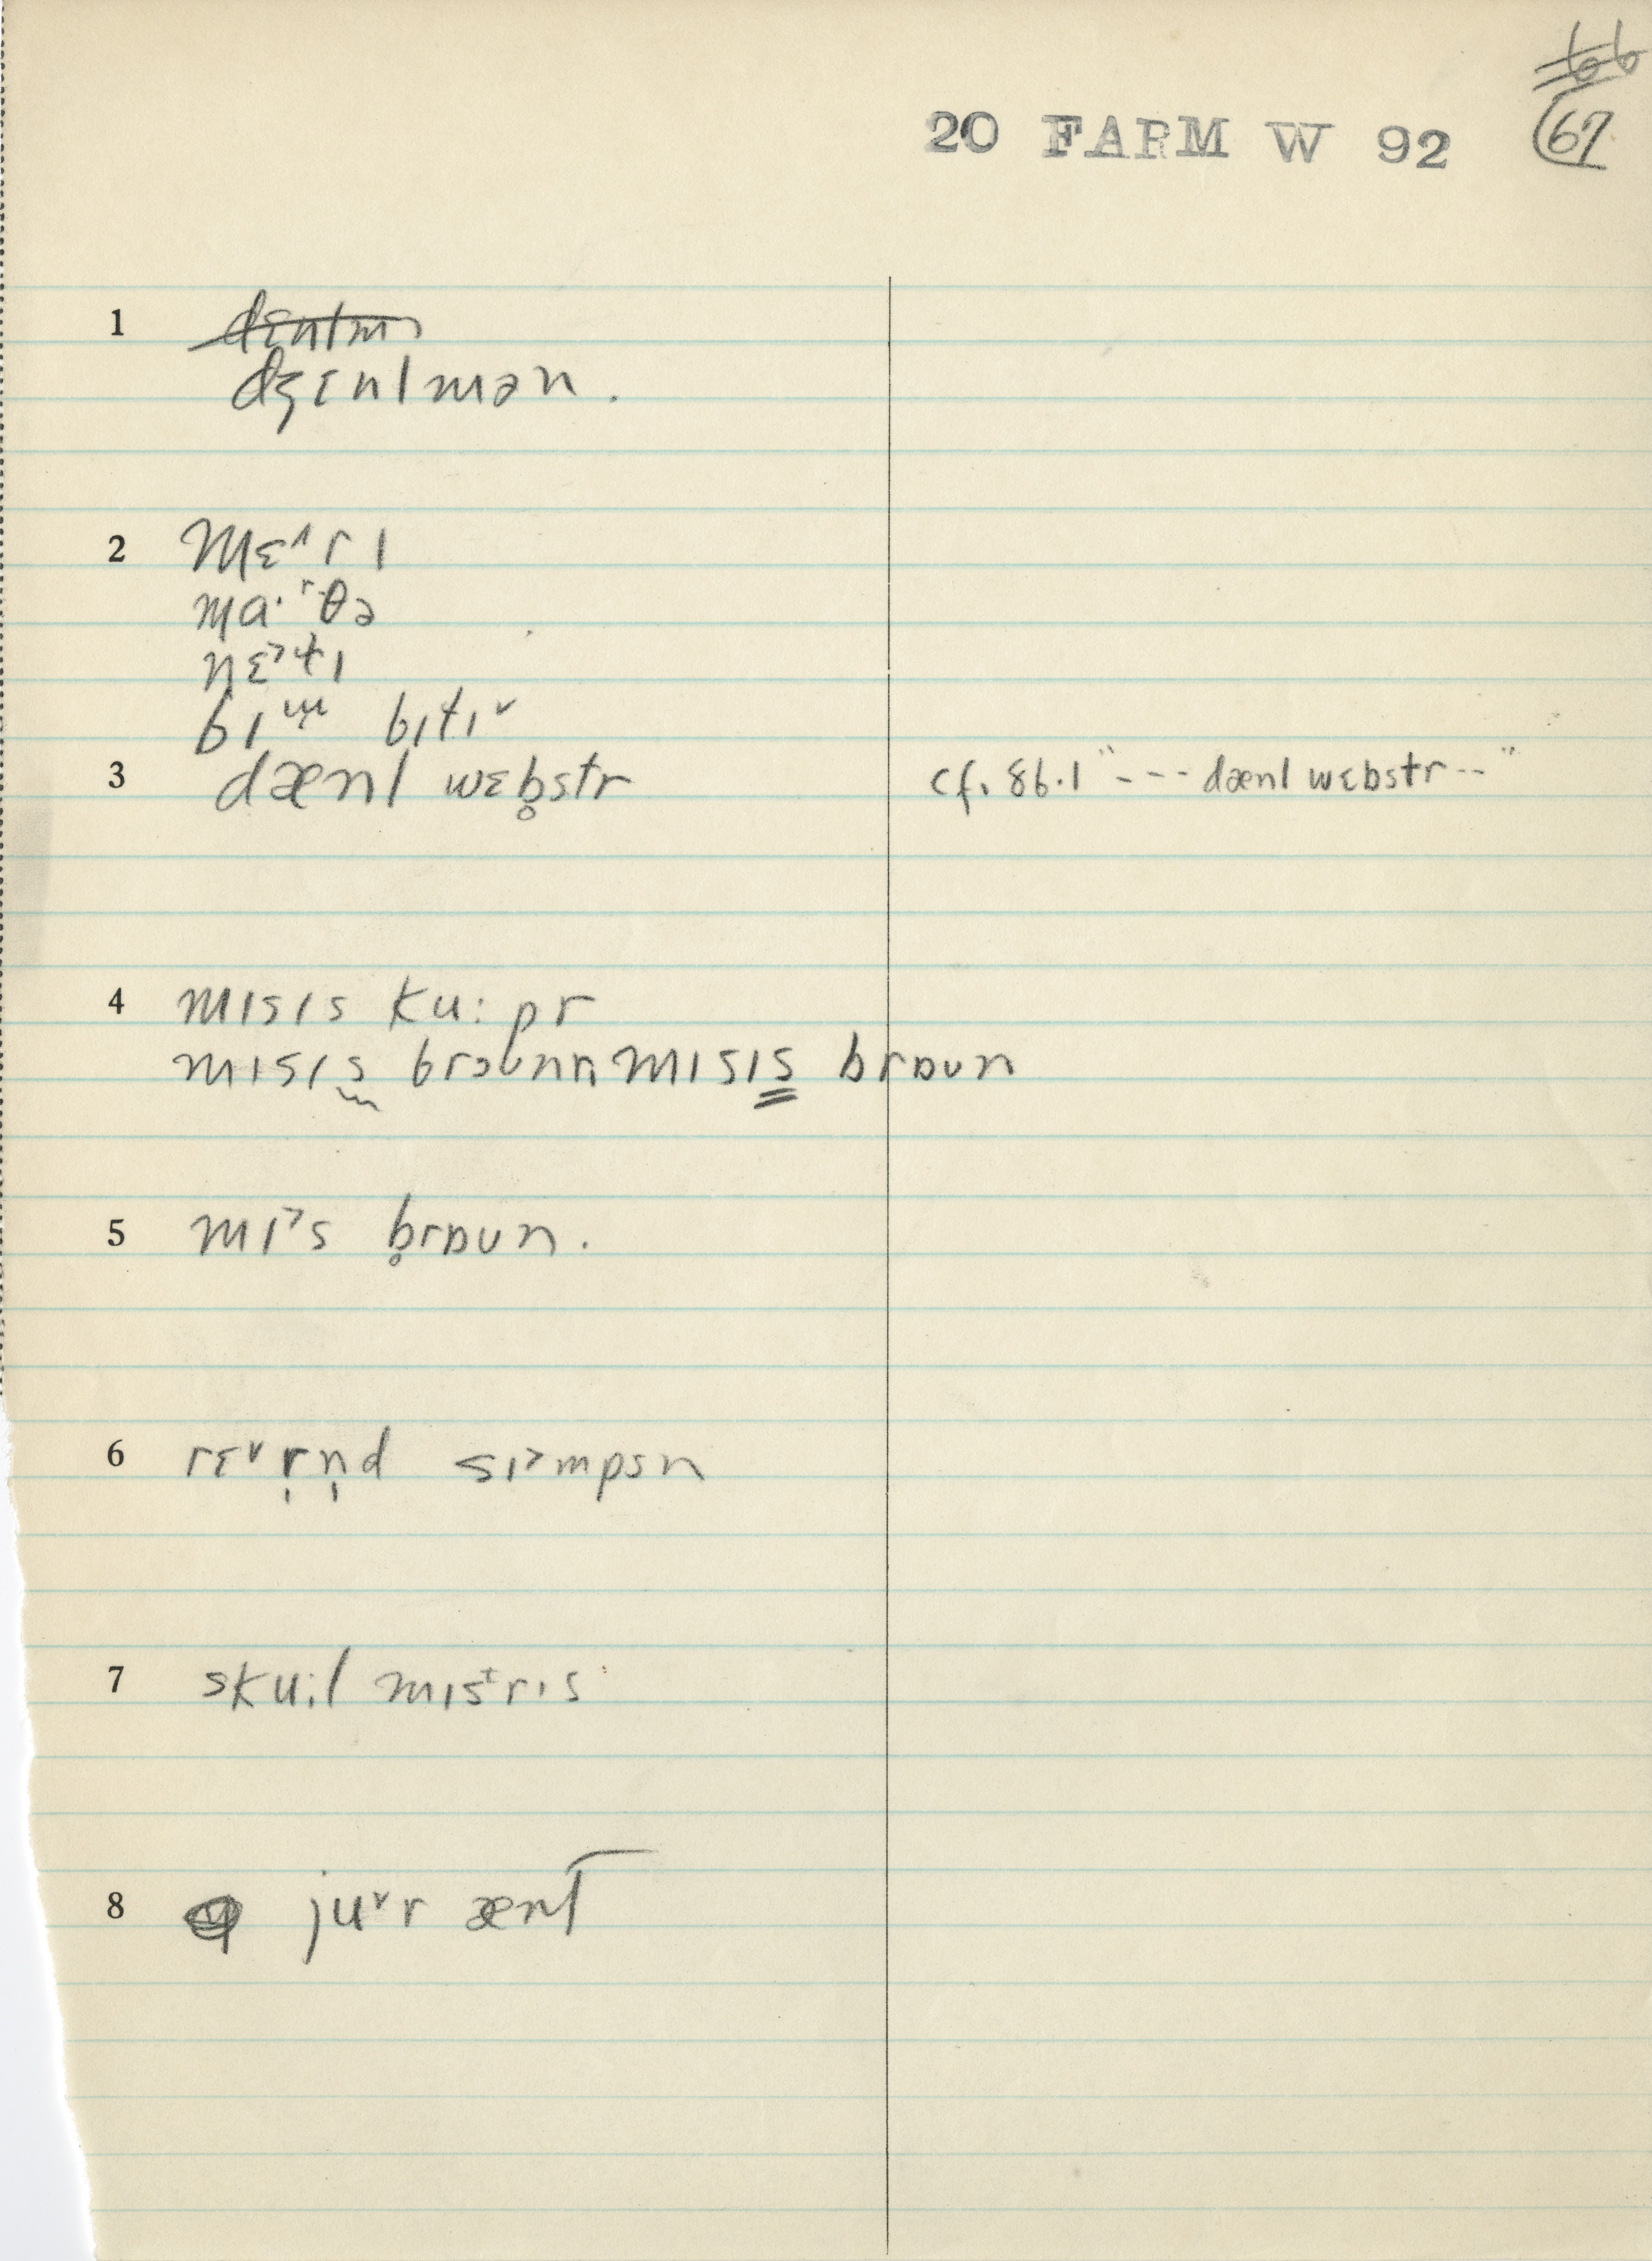 66
20 FARM W 92 67
1 dɛnlm
dʒɛnlmən.
2 mɛ˄rɪ
ma·ʳθə
nɛ˃t̬ɪ
bɪt̬ɪ˅
3 dænl wɛb̥str cf. 86.1 "--- dænl wɛbstr --"
4 mɪsɪs ku:pr
mɪsɪs braʊn mɪsɪs brɒʊn
5 mɪ˃s b̥rɒʊn.
6 rɛvr̩n̩d sɪ˃mpsn
7 sku:l mɪstrɪs
8 ju˅r ænt